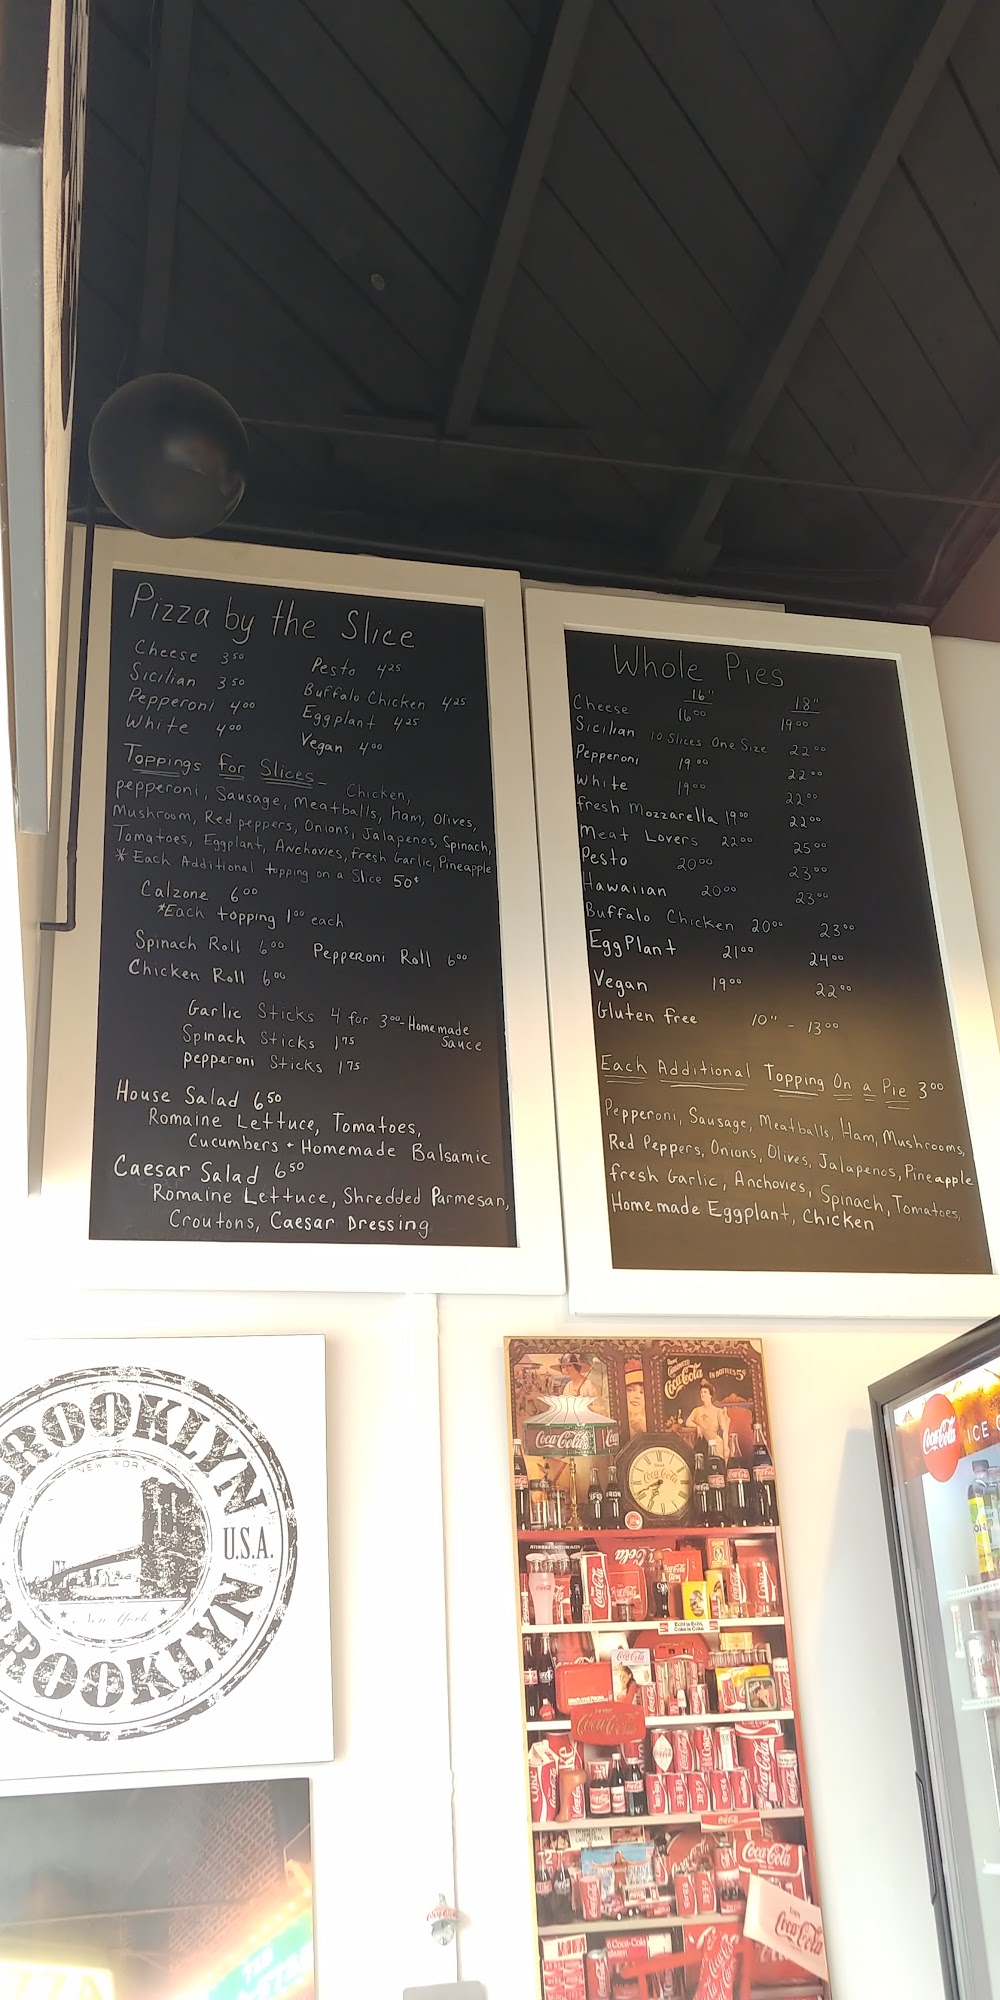 Pizza by the Slice
Cheese 3 50
Sicilian 3 50
Pepperoni 4 00
White 4 00
Pesto 4 25
Buffalo Chicken 4 25
Eggplant 4 25
Vegan 4 00
Toppings for Slices - Chicken,
pepperoni, Sausage, Meatballs, Ham, Olives,
Mushroom, Red peppers, Onions, Jalapenos, Spinach,
Tomatoes, Eggplant, Anchovies, fresh Garlic, Pineapple
* Each Additional topping on a Slice 50¢
Calzone 6 00
*Each topping 1 00 each
Spinach Roll 6 00 Pepperoni Roll 6 00
Chicken Roll 6 00
Garlic Sticks 4 for 3 00 - Homemade
Sauce
Spinach Sticks 1 75
pepperoni Sticks 1 75
House Salad 6 50
Romaine Lettuce, Tomatoes,
Cucumbers + Homemade Balsamic
Caesar Salad 6 50
Romaine Lettuce, Shredded Parmesan,
Croutons, Caesar Dressing
Whole Pies
16" 18"
Cheese 16 00 19 00
Sicilian 10 Slices One Size 22 00
Pepperoni 19 00 22 00
White 19 00 22 00
fresh Mozzarella 19 00 22 00
Meat Lovers 22 00 25 00
Pesto 20 00 23 00
Hawaiian 20 00 23 00
Buffalo Chicken 20 00 23 00
EggPlant 21 00 24 00
Vegan 19 00 22 00
Gluten free 10" - 13 00
Each Additional Topping On a Pie 3 00
Pepperoni, Sausage, Meatballs, Ham, Mushrooms,
Red Peppers, Onions, Olives, Jalapenos, Pineapple
fresh Garlic, Anchovies, Spinach, Tomatoes,
Homemade Eggplant, Chicken
BROOKLYN
NEW YORK
U.S.A.
New York
BROOKLYN
Coca-Cola
IN BOTTLES 5¢
Coca-Cola
Coca-Cola
Coca-Cola
Coca-Cola
Coca-Cola
Coca-Cola
Coca-Cola
ICE